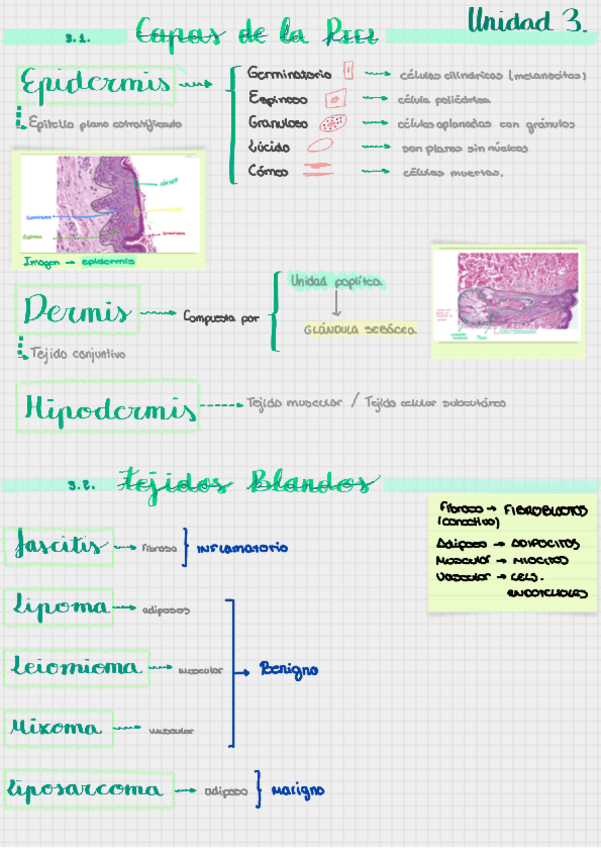 Unidad 3.
3.1. Capas de la Piel
Epidermis
Epitelio plano estratificado
Germinatorio → células cilíndricas (melanocitos)
Espinoso → célula poliédrica
Granuloso → células aplanadas con gránulos
Lúcido → son planas sin núcleos
Córneo → células muertas.
Imagen → epidermis
Dermis → Compuesta por
Tejido conjuntivo
Unidad poplítea
GLÁNDULA SEBÁCEA
Hipodermis → Tejido muscular / Tejido celular subcutáneo
3.2. Tejidos Blandos
Fibroso → FIBROBLASTOS
(conectivo)
Adiposo → ADIPOCITOS
Muscular → MIOCITOS
Vascular → CELS.
ENDOTELIALES
Fascitis → fibroso
INFLAMATORIO
Lipoma → adiposos
Leiomioma → muscular
Benigno
Mixoma → muscular
Liposarcoma → adiposo
Maligno